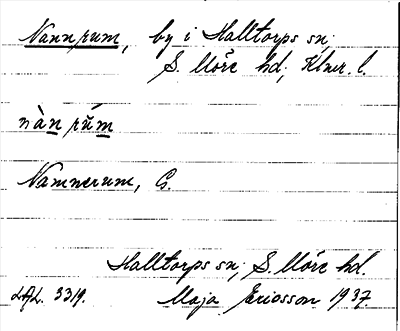 Nannrum, by i Halltorps sn,
S. Möre hd, Klmr. l.
nàn rŭm
Namnerum, G.
Halltorps sn, S. Möre hd.
LAL. 3319. Maja Ericsson 1937.